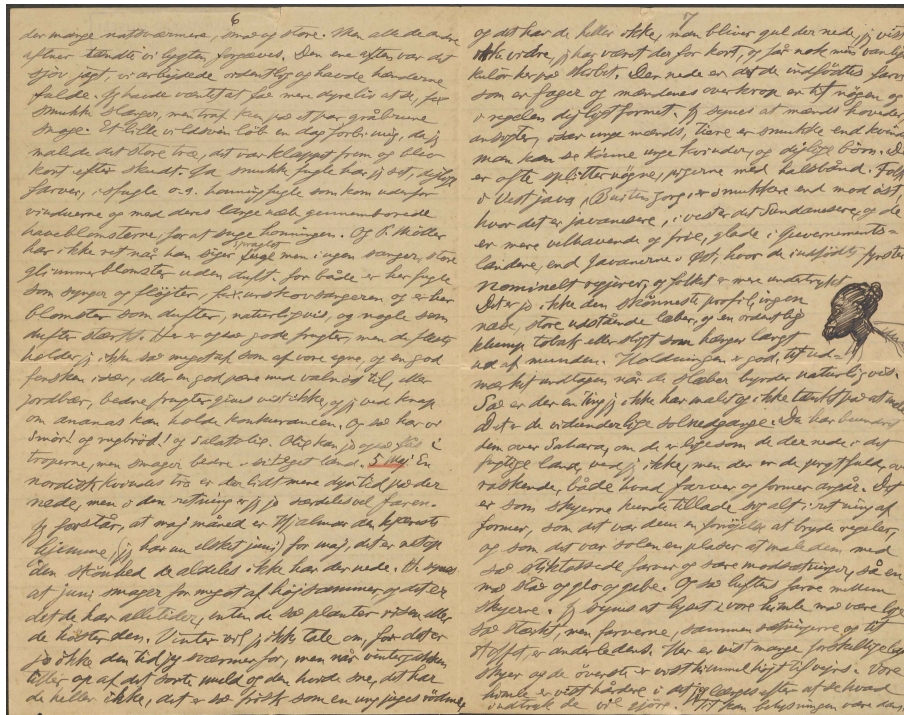 6
der mange natsværmere, små og store. Men alle de andre
aftner tændte vi lygten, forgæves. Den ene aften var det
sjov jagt, vi arbejdede ordentlig og havde hænderne
fulde. Jeg havde ventet at få mere dyreliv at se, f.ex.
smukke slanger, men traf kun på et par gråbrune
snoge. Et lille vildsvin løb en dag forbi mig, da jeg
malede det store træ, det var klappet frem og blev
kort efter skudt. Ja smukke fugle har jeg set, dejlige
farver, isfugle o.s. honningfugle som kom udenfor
vinduerne og med deres lange næb gennemborede
haveblomsterne, for at suge honningen. Og P. Møller
har ikke ret når han siger spraglet fugl men ingen sanger, store
glimmerblomster uden duft. for både er her fugle
som synger og fløjter, f.ex. urskovsangeren og er her
blomster som dufter, naturligvis, og nogle som
dufter stærkt. Her er også gode frugter, men de fleste
holder jeg ikke så meget af som af vore egne, og en god
fersken især, eller en god pære med valnød til, eller
jordbær, bedre frugter gives vist ikke, og jeg ved knap
om ananas kan holde konkurrencen, og så har vi
Smør! og rugbrød! og Salatolie. Olie kan jo også fås i
troperne, men smager bedre i sit eget land. 5 Maj. En
nordisk kvindes tro er der lidt mere dyr tid på der
nede, men i den retning er jeg jo særdeles vel faren.
Jeg forstår, at maj måned er Hjalmar den kæreste
hjemme, (jeg har nu elsket juni) for maj, det er netop
den skønhed de aldeles ikke har der nede. Vi synes
at juni smager for meget af højsommer, og det er
det de har alletider, enten de så planter risen eller
de høster den. Vinter vil jeg ikke tale om, for det er
jo ikke den tid jeg sværmer for, men når vintergækken
titter op af det sorte muld og den hvide sne, det har
de heller ikke, det er så frisk som en ung piges
7
og det har de heller ikke, man bliver gul der nede, jeg vist
ikke videre, jeg har været der for kort, og får nok min vanlige
kulør her på skibet. Der nede er det de indfødtes farve
som er fager og mændenes overkrop er tit nøgen og
i regelen dejligt formet. Jeg synes at mænds hoveder,
ansigter, især unge mænds, tiere er smukke end kvinders
man kan se kønne unge kvinder, og dejlige børn. De
er ofte splitternøgne, pigerne med halsbånd. Folk
i Vestjava, Buitenzorg, er smukkere end mod øst,
hvor det er javanesere, i vester det Sundanesere, og de
er mere velhavende og frie, glade i Guvernements=
landene, end Javanerne i Øst, hvor de indfødte fyrster
nominelt regjerer, og folket er mere undertrykt
Det er jo ikke den skønneste profil, ingen
næse, store udstående læber, og en ordentlig
klump tobak eller sligt som hænger langt
ud af munden. Holdningen er god, tit ud=
mærket undtagen når de slæber byrder naturligvis.
Så er der en ting jeg ikke har malet og ikke tænkt på at male
Det er de vidunderlige solnedgange. Du har beundret
dem over Sahara, om de er ligesom de der nede i det
fugtige land, ved jeg ikke, men der er de pragtfulde, over
raskende, både hvad farver og former angår. Det
er som skyerne kunde tillade sig alt i retning af
former, som det var dem en fornøjelse at bryde regler,
og som det var solen en plaser at male dem, med
så stiktossede farver og sære modsætninger, så en
må stå og glo og gabe. Og så luftens farve mellem
skyerne. Jeg synes at lyset i vore himle må være lige
så stærkt, men farverne, sammensætningerne og tit
stoffet, er anderledes. Her er vist mange forskellige lag
skyer og de øverste er vist himmelhøjt tilvejrs. Vore
himle er vist hårdere i det
indtryk de vil gjøre. Tit kan belysningen være